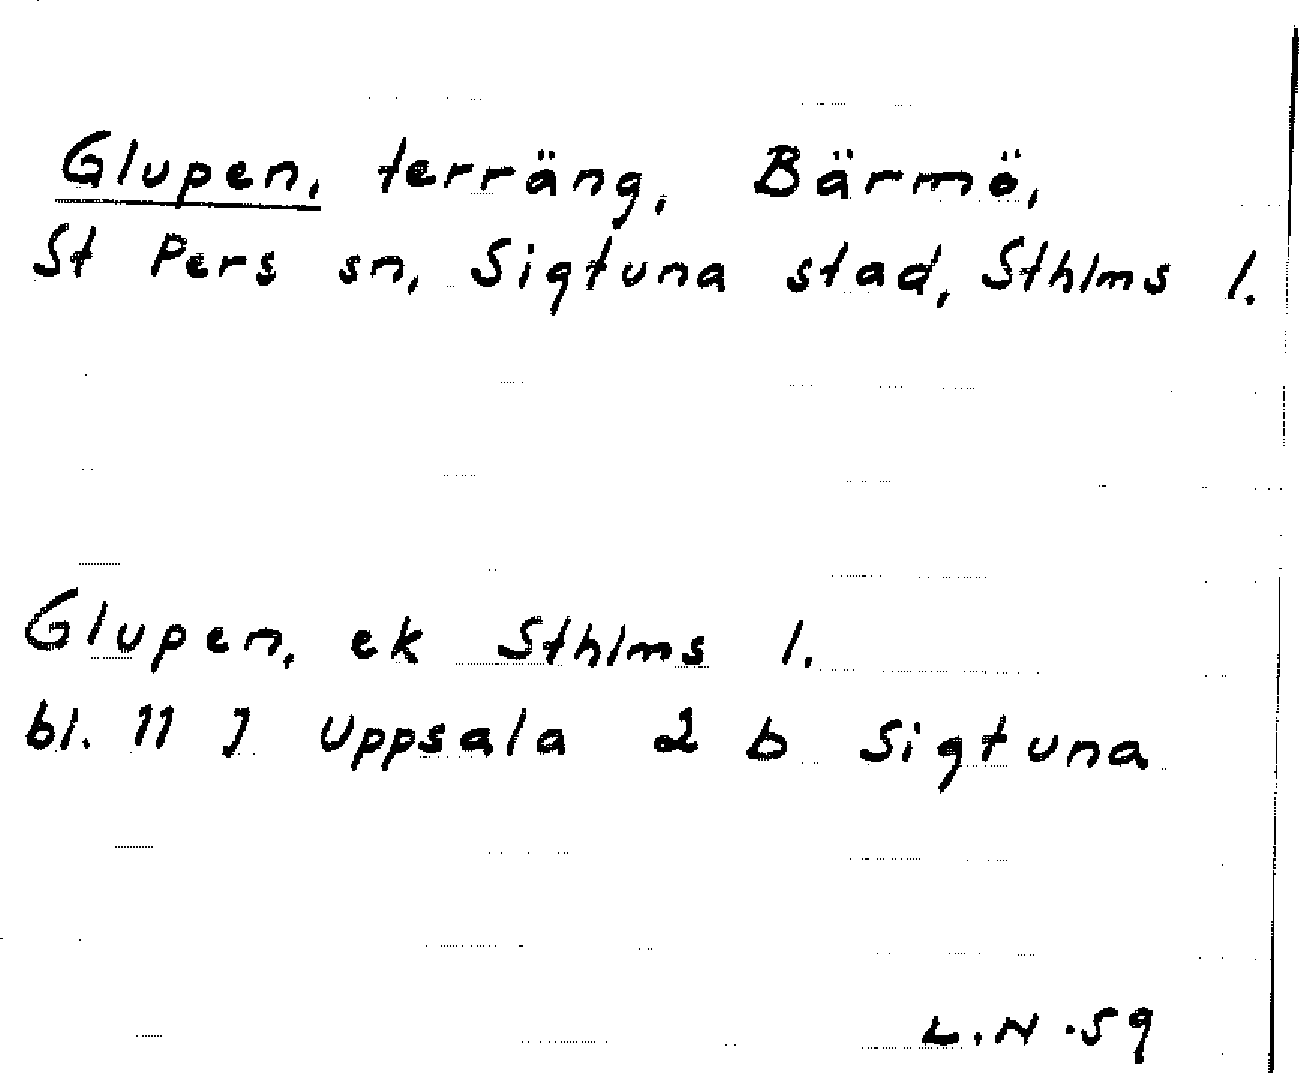 Glupen, terräng, Bärmö,
St Pers sn, Sigtuna stad, Sthlms l.
Glupen, ek Sthlms l.
bl. 11 I Uppsala 2 b Sigtuna
L.N.59